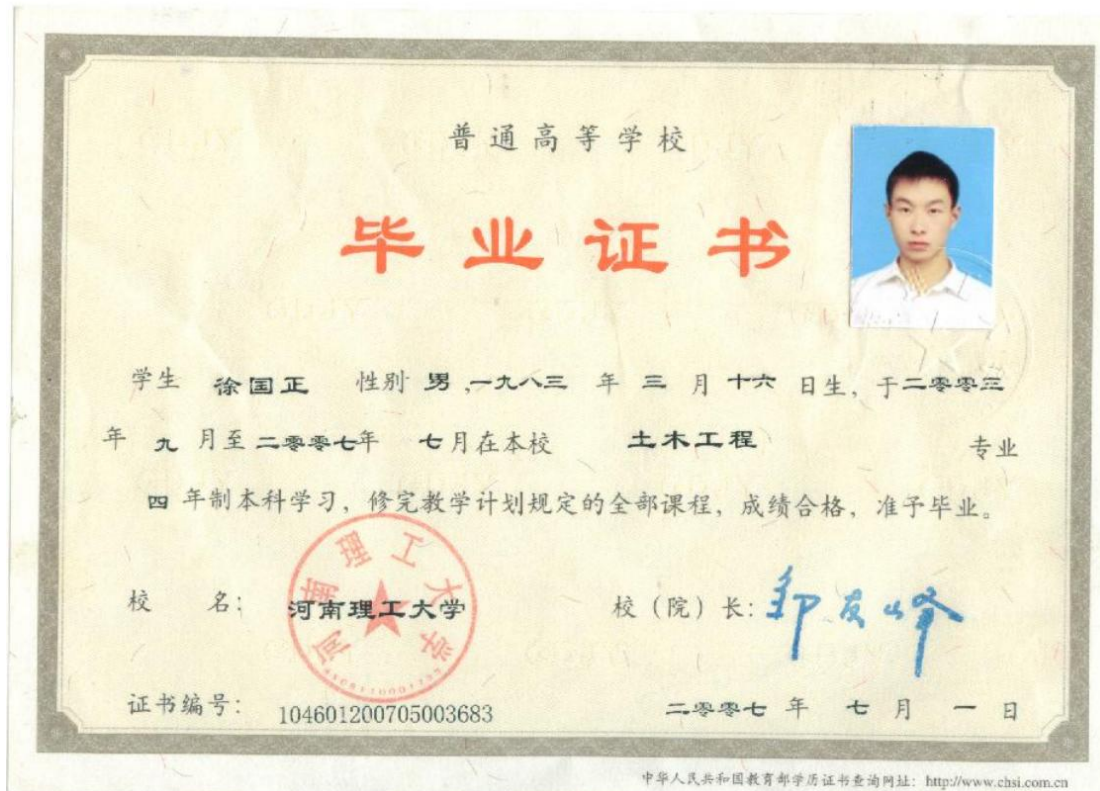 普通高等学校
毕业证书
学生 徐国正 性别 男，一九八三 年 三 月 十六 日生，于二零零三
年 九 月至 二零零七年 七月在本校 土木工程 专业
四 年制本科学习，修完教学计划规定的全部课程，成绩合格，准予毕业。
河南理工大学
校 名： 河南理工大学 校（院）长：邹友峰
证书编号： 104601200705003683 二零零七 年 七 月 一 日
中华人民共和国教育部学历证书查询网址： http://www.chsi.com.cn